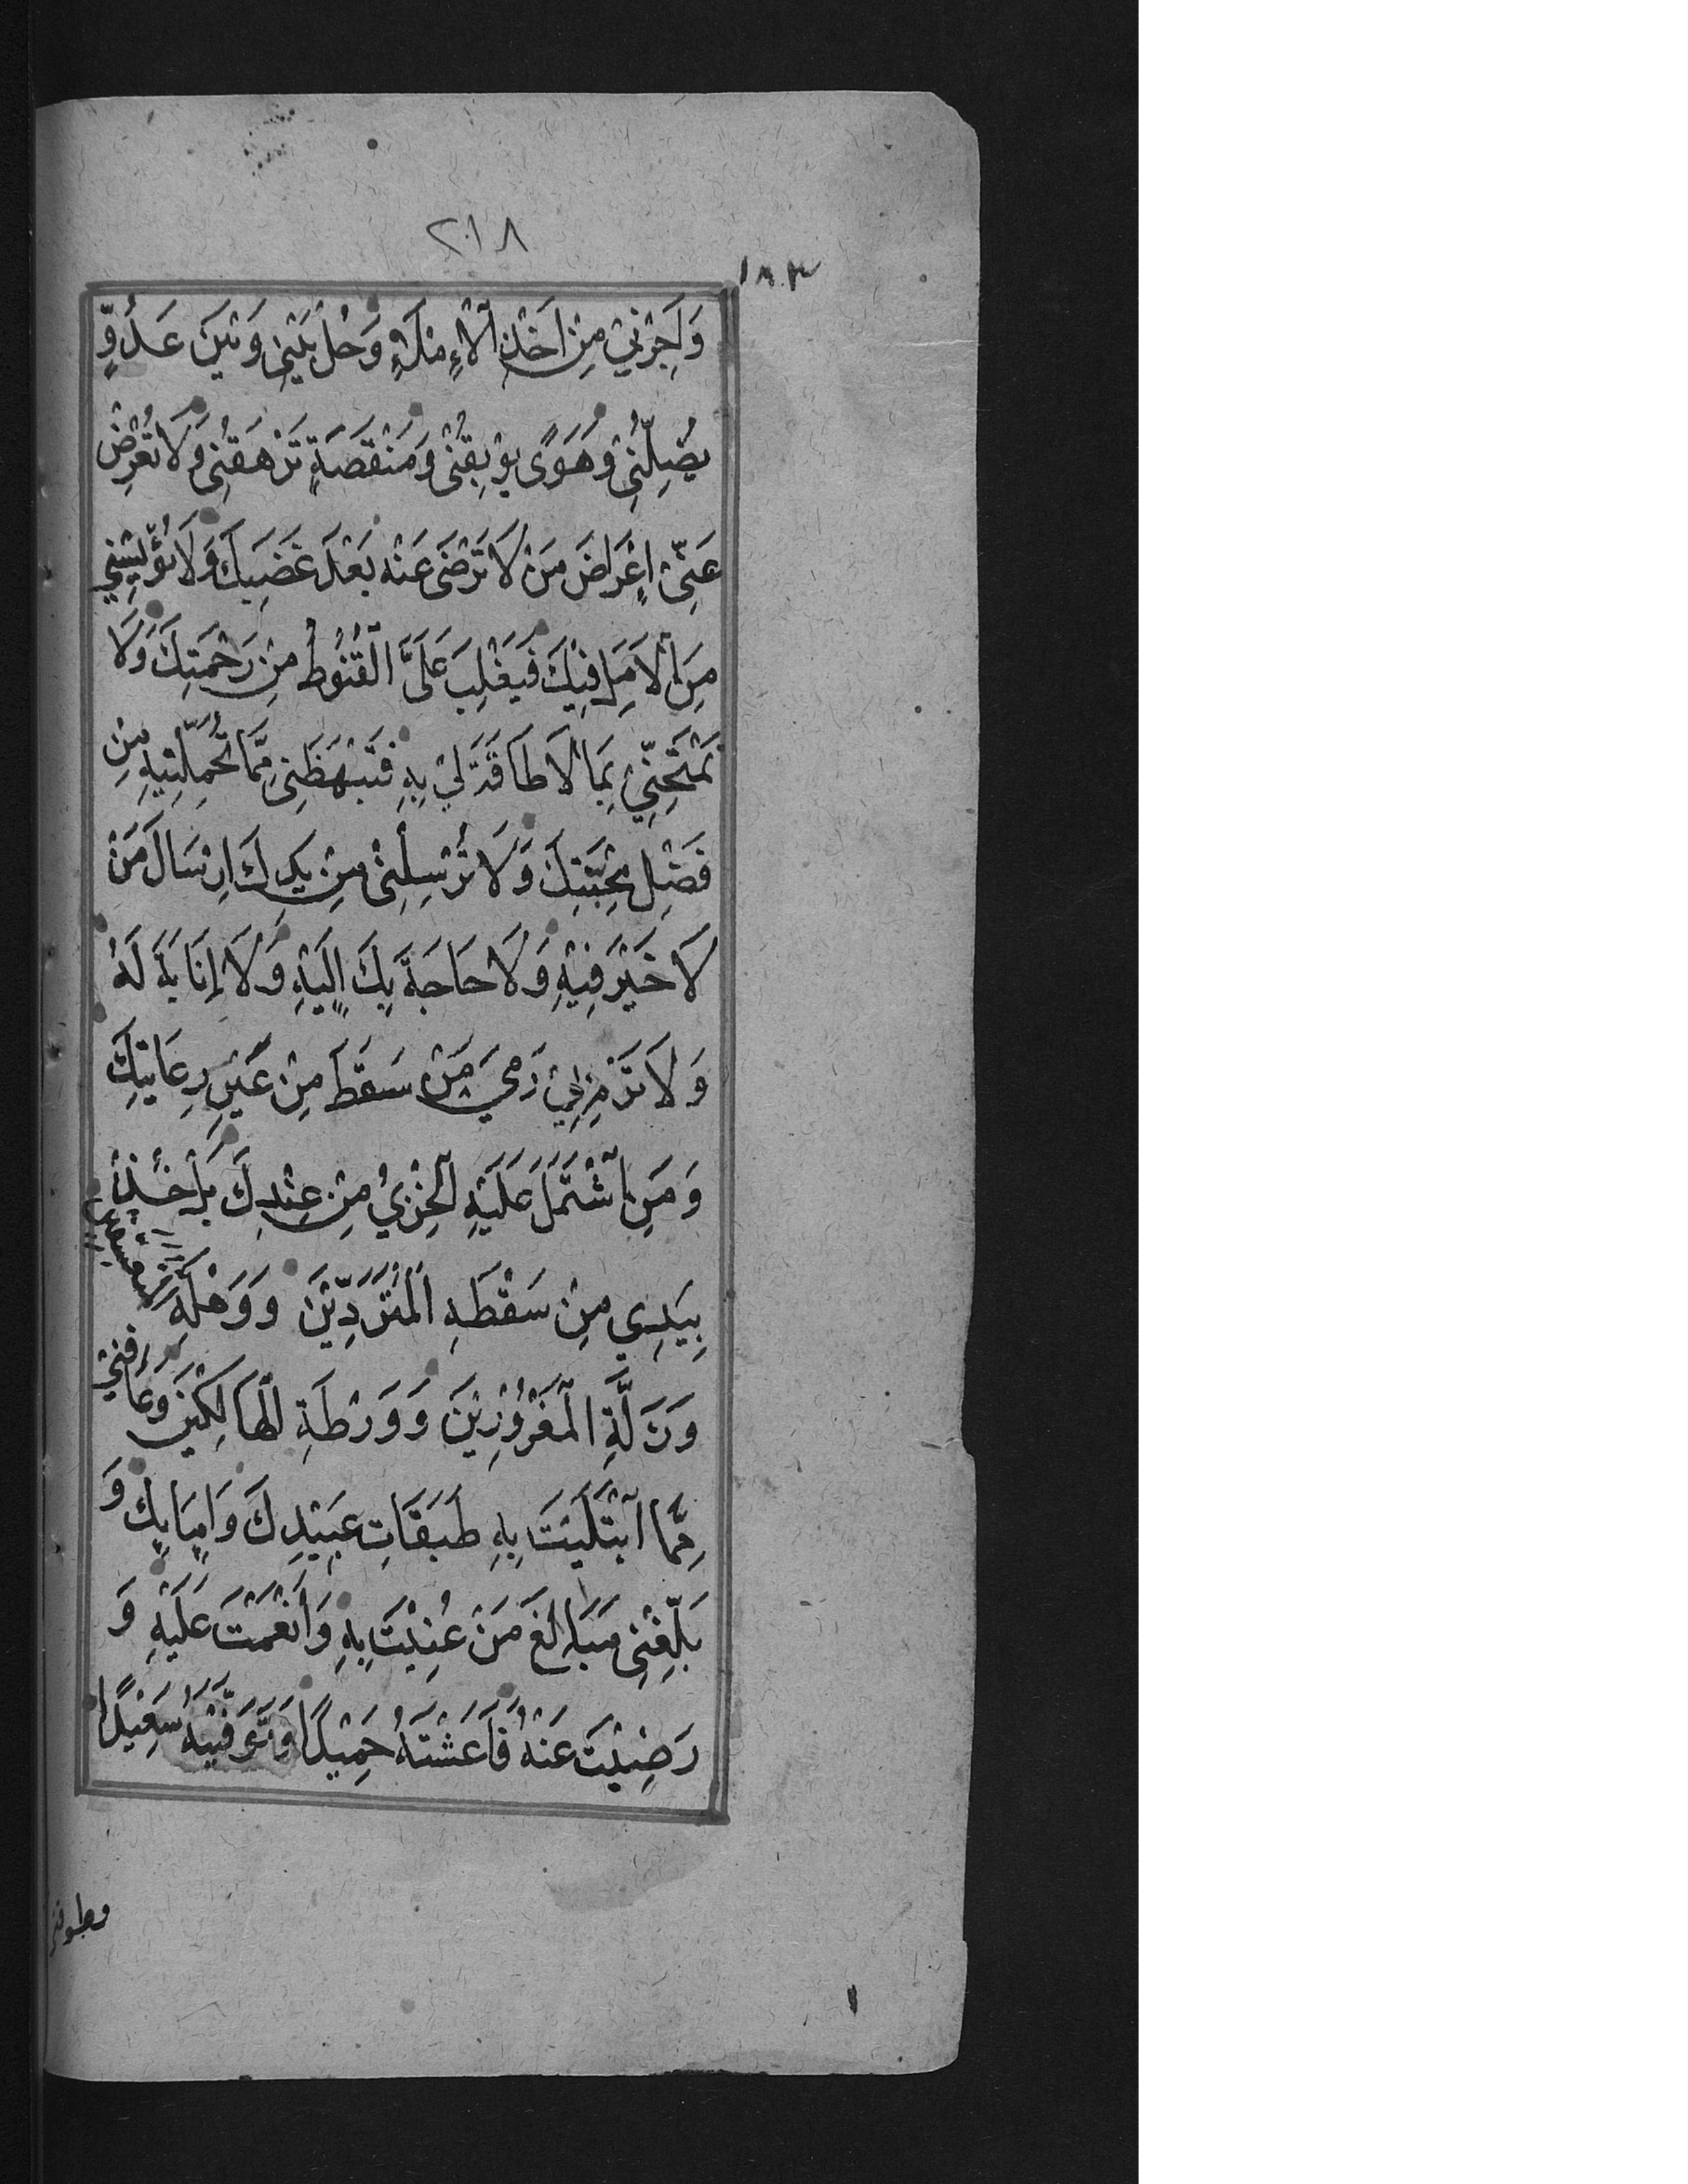 ٢١٨
١٨٣
وَاَجِرْنِيْ مِنْ اَخْذِ الْاِمْلَاءِ وَحُلْ بَيْنِيْ وَبَيْنَ عَدُوٍّ
يُضِلُّنِيْ وَهَوًى يُوْبِقُنِيْ وَمَنْقَصَةٍ تَرْهَقُنِيْ وَلَا تُعْرِضْ
عَنِّيْ اِعْرَاضَ مَنْ لَا تَرْضٰى عَنْهُ بَعْدَ غَضَبِكَ وَلَا تُؤْيِسْنِيْ
مِنَ الْاَمَلِ فِيْكَ فَيَغْلِبَ عَلَيَّ الْقُنُوْطُ مِنْ رَحْمَتِكَ وَلَا
تَمْتَحِنِّيْ بِمَا لَا طَاقَةَ لِيْ بِهٖ فَتَبْهَظَنِيْ مِمَّا تُحَمِّلُنِيْهِ مِنْ
فَضْلِ مَحَبَّتِكَ وَلَا تُرْسِلْنِيْ مِنْ يَدِكَ اِرْسَالَ مَنْ
لَا خَيْرَ فِيْهِ وَلَا حَاجَةَ بِكَ اِلَيْهِ وَلَا اِنَابَةَ لَهٗ
وَلَا تَرْمِ بِيْ رَمْيَ مَنْ سَقَطَ مِنْ عَيْنِ رِعَايَتِكَ
وَمَنِ اشْتَمَلَ عَلَيْهِ الْخِزْيُ مِنْ عِنْدِكَ بَلْ خُذْ
بِيَدِيْ مِنْ سَقْطَةِ الْمُتَرَدِّيْنَ وَوَهْلَةِ الْمُتَعَسِّفِيْنَ
وَزَلَّةِ الْمَغْرُوْرِيْنَ وَوَرْطَةِ الْهَالِكِيْنَ وَعَافِنِيْ
مِمَّا ابْتَلَيْتَ بِهٖ طَبَقَاتِ عَبِيْدِكَ وَاِمَائِكَ وَ
بَلِّغْنِيْ مَبَالِغَ مَنْ عُنِيْتَ بِهٖ وَاَنْعَمْتَ عَلَيْهِ وَ
رَضِيْتَ عَنْهُ فَاَعَشْتَهٗ حَمِيْدًا وَتَوَفَّيْتَهٗ سَعِيْدًا
وطوقني